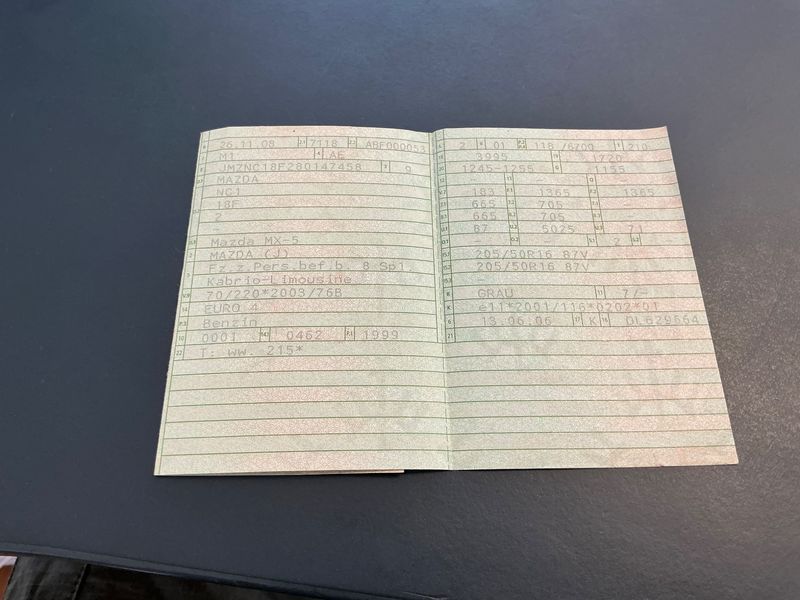 26.11.08 2.1 7118 2.2 ABF000053
M1 4 AE
JMZNC18F280147458 3 0
MAZDA
NC1
18F
2
-
Mazda MX-5
MAZDA (J)
Fz.z.Pers.bef.b. 8 Spl.
Kabrio-Limousine
70/220*2003/76B
EURO 4
Benzin
0001 0462 1999
22 T: ww. 215*
2 9 01 118 /6700 T 210
18 3995 19 1720
20 1245-1255 G 1155
- -
183 1365 1365
665 705 -
665 705 -
87 5025 71
- - 2 -
205/50R16 87V
205/50R16 87V
R GRAU 11 7/-
K e11*2001/116*0202*01
6 13.06.06 17 K 16 DL629564
21